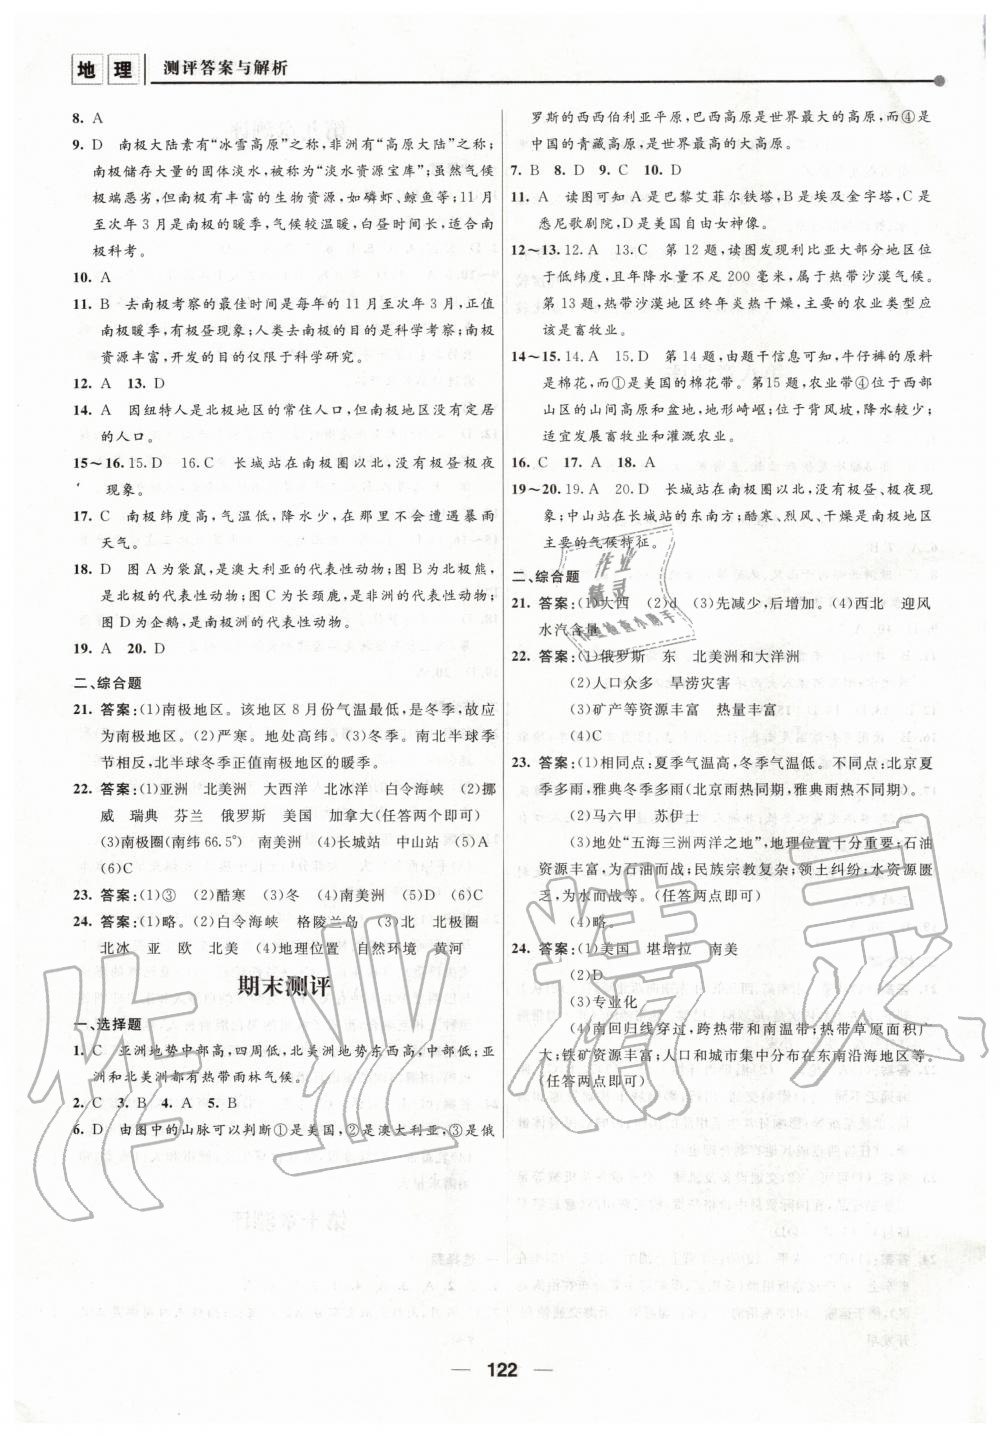 地理 测评答案与解析
8. A
9. D 南极大陆素有“冰雪高原”之称,非洲有“高原大陆”之称;
南极储存大量的固体淡水,被称为“淡水资源宝库”;虽然气候
极端恶劣,但南极有丰富的生物资源,如磷虾、鲸鱼等;11月
至次年3月是南极的暖季,气候较温暖,白昼时间长,适合南
极科考。
10. A
11. B 去南极考察的最佳时间是每年的11月至次年3月,正值
南极暖季,有极昼现象;人类去南极的目的是科学考察;南极
资源丰富,开发的目的仅限于科学研究。
12. A 13. D
14. A 因纽特人是北极地区的常住人口,但南极地区没有定居
的人口。
15~16. 15. D 16. C 长城站在南极圈以北,没有极昼极夜
现象。
17. C 南极纬度高,气温低,降水少,在那里不会遭受暴雨
天气。
18. D 图A为袋鼠,是澳大利亚的代表性动物;图B为北极熊,
是北极的代表性动物;图C为长颈鹿,是非洲的代表性动物;
图D为企鹅,是南极洲的代表性动物。
19. A 20. D
二、综合题
21. 答案:(1)南极地区。该地区8月份气温最低,是冬季,故应
为南极地区。(2)严寒。地处高纬。(3)冬季。南北半球季
节相反,北半球冬季正值南极地区的暖季。
22. 答案:(1)亚洲 北美洲 大西洋 北冰洋 白令海峡 (2)挪
威 瑞典 芬兰 俄罗斯 美国 加拿大(任答两个即可)
(3)南极圈(南纬66.5°) 南美洲 (4)长城站 中山站 (5)A
(6)C
23. 答案:(1)③ (2)酷寒 (3)冬 (4)南美洲 (5)D (6)C
24. 答案:(1)略。(2)白令海峡 格陵兰岛 (3)北 北极圈
北冰 亚 欧 北美 (4)地理位置 自然环境 黄河
期末测评
一、选择题
1. C 亚洲地势中部高,四周低,北美洲地势东西高,中部低;亚
洲和北美洲都有热带雨林气候。
2. C 3. B 4. A 5. B
6. D 由图中的山脉可以判断①是美国,②是澳大利亚,③是俄
罗斯的西西伯利亚平原,巴西高原是世界最大的高原,而④是
中国的青藏高原,是世界最高的大高原。
7. B 8. D 9. C 10. D
11. A 读图可知A是巴黎艾菲尔铁塔,B是埃及金字塔,C是
悉尼歌剧院,D是美国自由女神像。
12~13. 12. A 13. C 第12题,读图发现利比亚大部分地区位
于低纬度,且年降水量不足200毫米,属于热带沙漠气候。
第13题,热带沙漠地区终年炎热干燥,主要的农业类型应
该是畜牧业。
14~15. 14. A 15. D 第14题,由题干信息可知,牛仔裤的原料
是棉花,而①是美国的棉花带。第15题,农业带④位于西部
山区的山间高原和盆地,地形崎岖;位于背风坡,降水较少;
适宜发展畜牧业和灌溉农业。
16. C 17. A 18. A
19~20. 19. A 20. D 长城站在南极圈以北,没有极昼、极夜现
象;中山站在长城站的东南方;酷寒、烈风、干燥是南极地区
主要的气候特征。
二、综合题
21. 答案:(1)大西 (2)d (3)先减少,后增加。(4)西北 迎风
水汽含量
22. 答案:(1)俄罗斯 东 北美洲和大洋洲
(2)人口众多 旱涝灾害
(3)矿产等资源丰富 热量丰富
(4)C
23. 答案:(1)相同点:夏季气温高,冬季气温低。不同点:北京夏
季多雨,雅典冬季多雨(北京雨热同期,雅典雨热不同期)。
(2)马六甲 苏伊士
(3)地处“五海三洲两洋之地”,地理位置十分重要;石油
资源丰富,为石油而战;民族宗教复杂;领土纠纷;水资源匮
乏,为水而战等。(任答两点即可)
(4)略。
24. 答案:(1)美国 堪培拉 南美
(2)D
(3)专业化
(4)南回归线穿过,跨热带和南温带;热带草原面积广
大;铁矿资源丰富;人口和城市集中分布在东南沿海地区等。
(任答两点即可)
作业精灵
作业
精灵
作业检查小助手
122